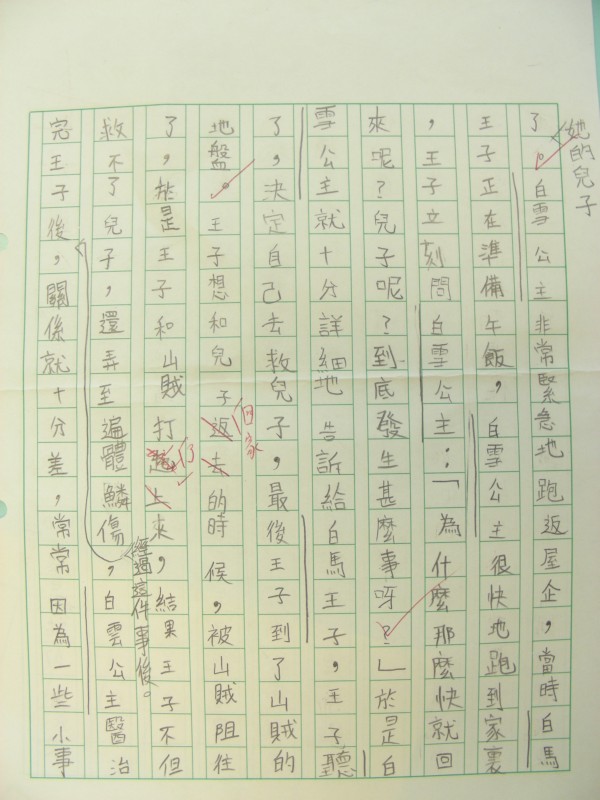 她的兒子
了。白雪公主非常緊急地跑返屋企,當時白馬
王子正在準備午飯,白雪公主很快地跑到家裏
,王子立刻問白雪公主:「為什麼那麼快就回
來呢?兒子呢?到底發生甚麼事呀?」於是白
雪公主就十分詳細地告訴給白馬王子,王子聽
了,決定自己去救兒子,最後王子到了山賊的
地盤。王子想和兒子返去的時候,被山賊阻往
回家
了,於是王子和山賊打上來,結果王子不但
了
救不了兒子,還弄至遍體鱗傷,白雲公主醫治
經過這件事後。
完王子後,關係就十分差,常常因為一些小事